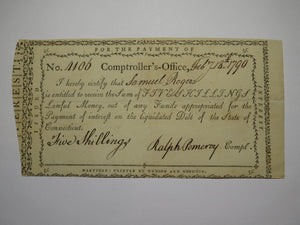 FOR THE PAYMENT OF
No. 4106 Comptroller's-Office, Feb.y 1790
I hereby certify that Samuel Rogers
is entitled to receive the Sum of FIVE SHILLINGS
Lawful Money, out of any Funds appropriated for the
Payment of interest on the liquidated Debt of the State of
Connecticut.
Five Shillings Ralph Pomeroy Compl.
HARTFORD: PRINTED BY HUDSON AND GOODWIN.
INTEREST